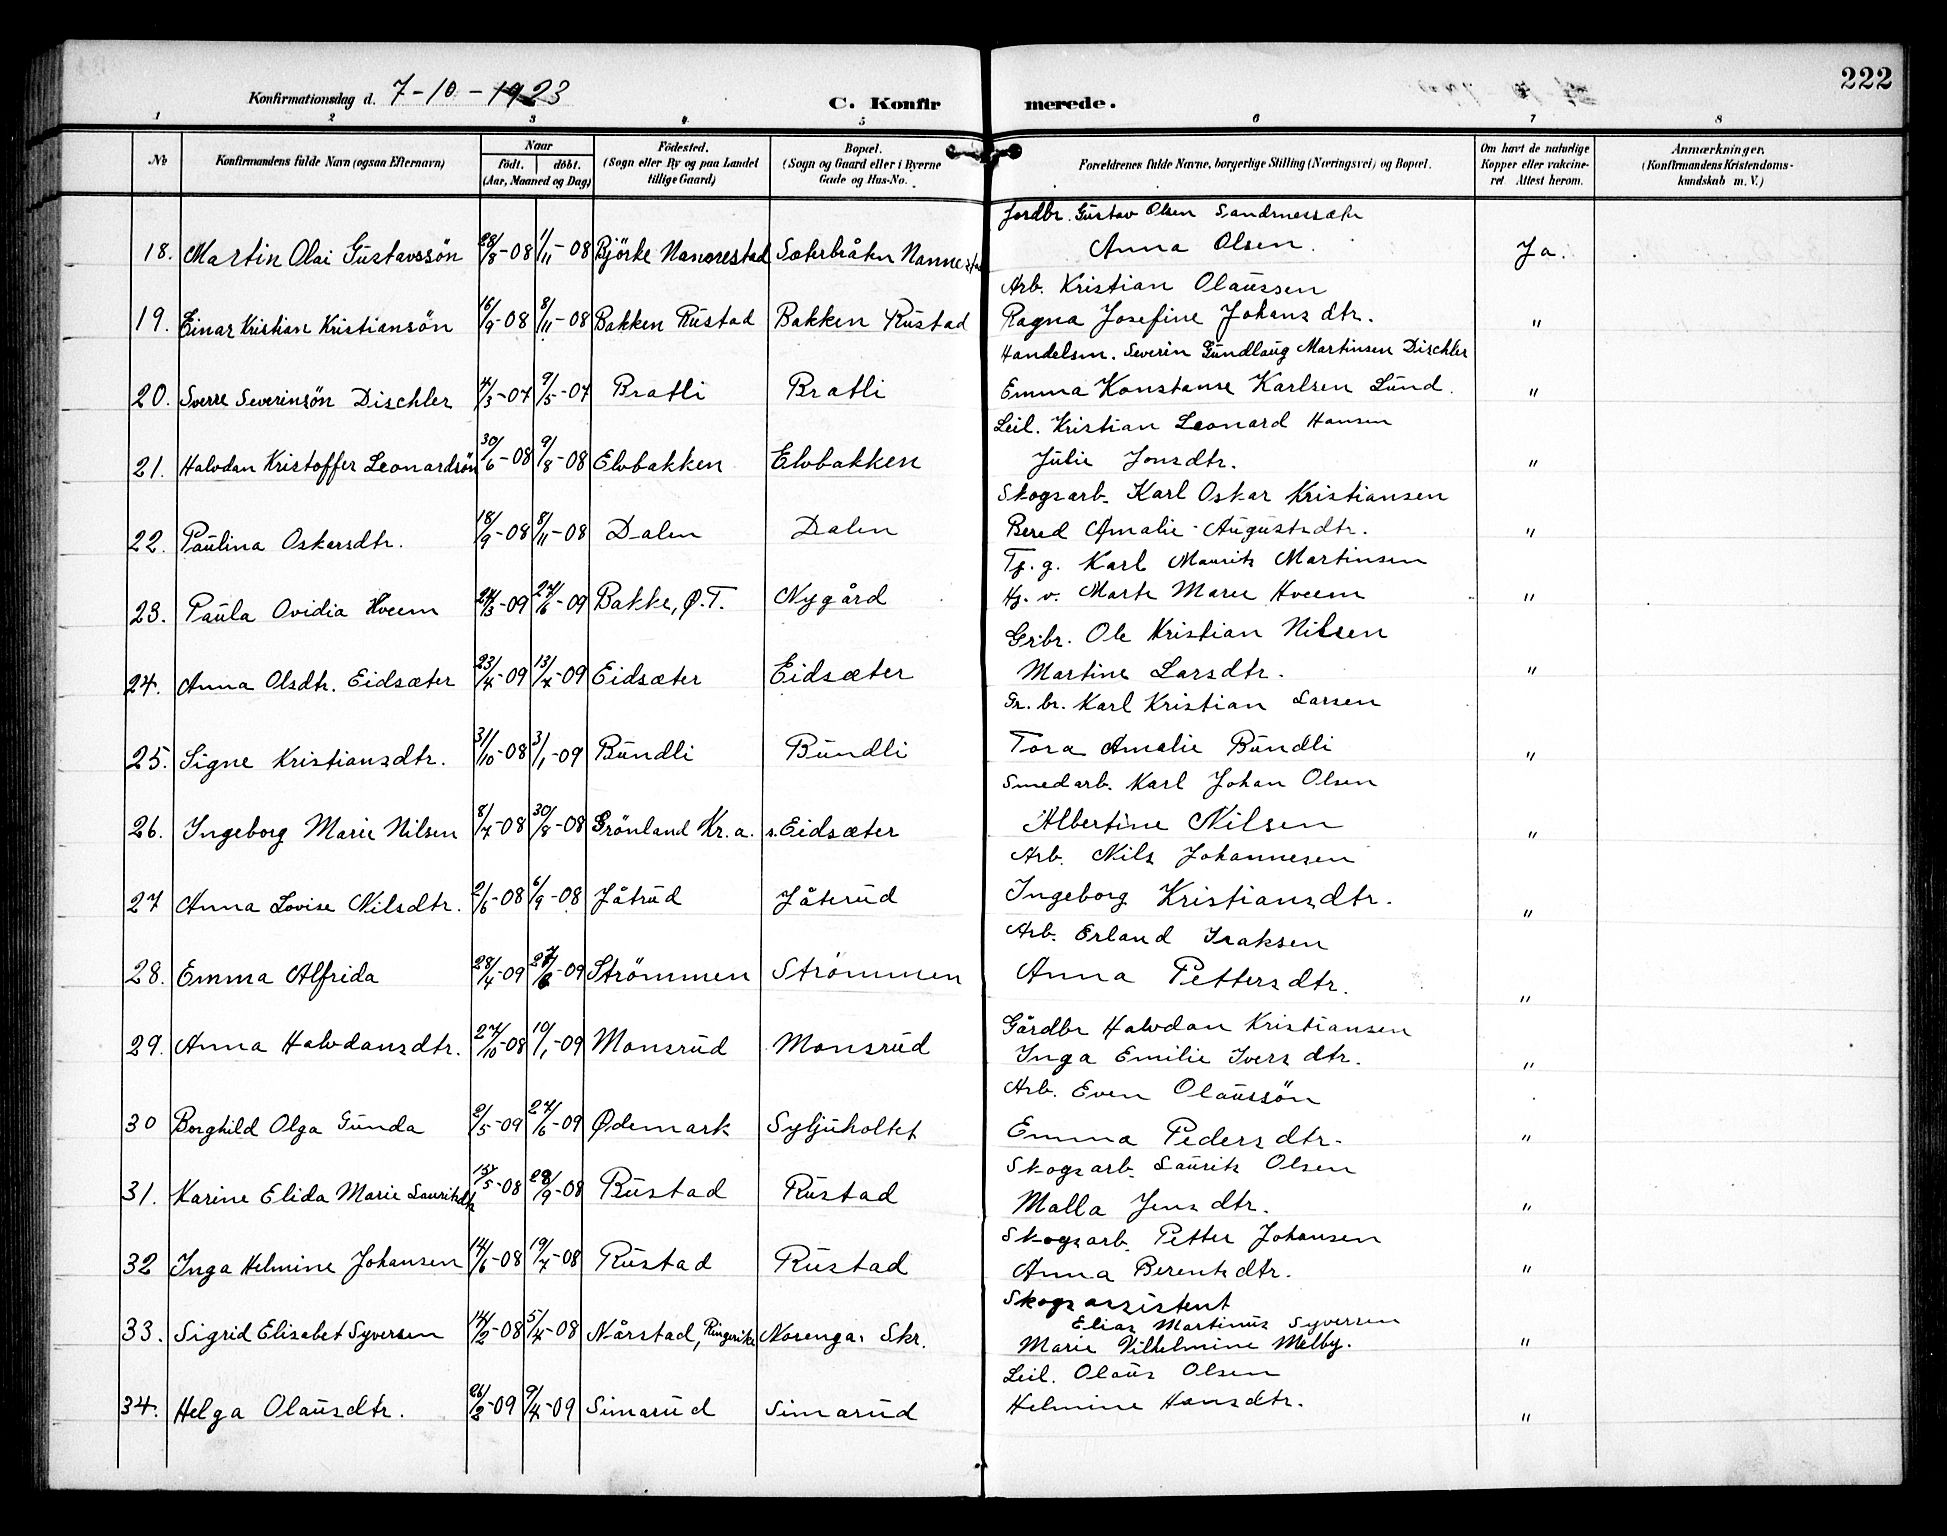 Konfirmationsdag d. 7-10-1923
C. Konfirmerede.
222
1 2 3 4 5 6 7 8
No
Konfirmandens fulde Navn (ogsaa Efternavn)
Naar
født. døbt.
(Aar, Maaned og Dag)
Fødested.
(Sogn eller By og paa Landet
tillige Gaard)
Bopæl.
(Sogn og Gaard eller i Byerne
Gade og Hus-No.
Forældrenes fulde Navne, borgerlige Stilling (Næringsvei) og Bopæl.
Om havt de naturlige
Kopper eller vakcine-
ret Attest herom.
Anmærkninger.
(Konfirmandens Kristendoms-
kundskab m. V.)
Jordbr. Gustav Olsen Sandnessætr
18. Martin Olai Gustavssön 28/8-08 1/11-08 Björke Nannestad Sæterbråten Nannestad Anna Olsen. Ja.
Arb. Kristian Olaussen
19. Einar Kristian Kristiansön 16/9-08 8/11-08 Bakken Rustad Bakken Rustad Ragna Josefine Johansdtr. "
Handelsm. Severin Gundlaug Martinsen Dischler
20. Sverre Severinsön Dischler 4/3-07 9/5-07 Bratli Bratli Emma Konstanse Karlsen Lund. "
Leil. Kristian Leonard Hansen
21. Halvdan Kristoffer Leonardsön 30/6-08 9/8-08 Elvbakken Elvbakken Julie Jonsdtr. "
Skogsarb. Karl Oskar Kristiansen
22. Paulina Oskarsdtr. 18/9-08 8/11-08 Dalen Dalen Bered Amalie Augustsdtr. "
Tj. g. Karl Mauritz Martinsen
23. Paula Ovidia Hveem 24/3-09 27/6-09 Bakke, Ø.T. Nygård Hj. v. Marte Marie Hveem "
Grbr. Ole Kristian Nilsen
24. Anna Olsdtr. Eidsæter 23/4-09 13/7-09 Eidsæter Eidsæter Martine Larsdtr. "
Gr. br. Karl Kristian Larsen
25. Signe Kristiansdtr. 31/10-08 3/1-09 Bundli Bundli Tora Amalie Bundli "
Smedarb. Karl Johan Olsen
26. Ingeborg Marie Nilsen 8/7-08 30/8-08 Grönland Kr.a. s. Eidsæter Albertine Nilsen "
Arb. Nils Johannesen
27 Anna Lovise Nilsdtr. 2/6-08 6/9-08 Jåtrud Jåterud Ingeborg Kristiansdtr. "
Arb. Erland Isaksen
28. Emma Alfrida 28/4-09 27/6-09 Strömmen Strömmen Anna Pettersdtr. "
Gårdbr Halvdan Kristiansen
29. Anna Halvdansdtr. 27/10-08 10/1-09 Monsrud Monsrud Inga Emilie Iversdtr. "
Arb. Even Olaussön
30 Borghild Olga Gunda 2/5-09 27/6-09 Ødemark Syljuholtet Emma Pedersdtr. "
Skogsarb. Lauritz Olsen
31. Karine Elida Marie Lauritsdtr 15/5-08 29/9-08 Rustad Rustad Malla Jensdtr. "
Skogsarb. Petter Johansen
32 Inga Helmine Johansen 14/6-08 19/7-08 Rustad Rustad Anna Berentsdtr. "
Skogsassistent
Elias Martinus Syversen
33. Sigrid Elisabet Syversen 14/2-08 5/4-08 Nårstad, Ringerike Norenga. Skr. Marie Vilhelmine Melby. "
Leil. Olaus Olsen
34. Helga Olausdtr. 26/2-09 9/4-09 Simarud Simarud Helmine Hansdtr. "